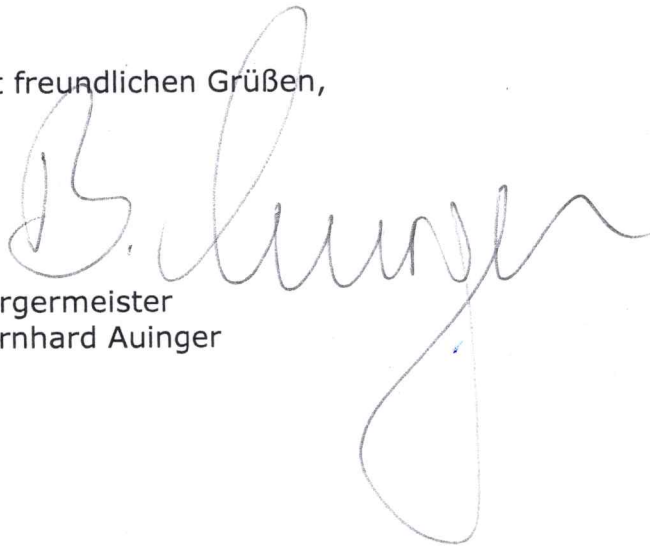 t freundlichen Grüßen,
B. Auinger
rgermeister
rnhard Auinger